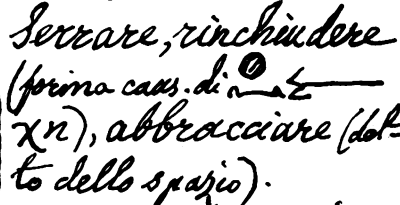 serrare, rinchiudere
(forma caus. di
χn), abbracciare (det-
to dello spazio).